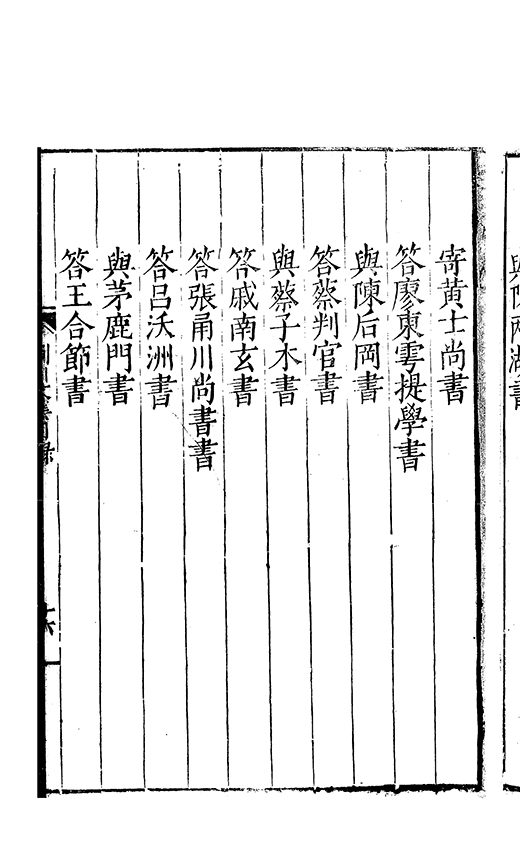 寄黄士尚書
答廖東雩提學書
與陳后岡書
答蔡判官書
與蔡子木書
答戚南玄書
答張甬川尚書書
答呂沃洲書
與茅鹿門書
答王合節書